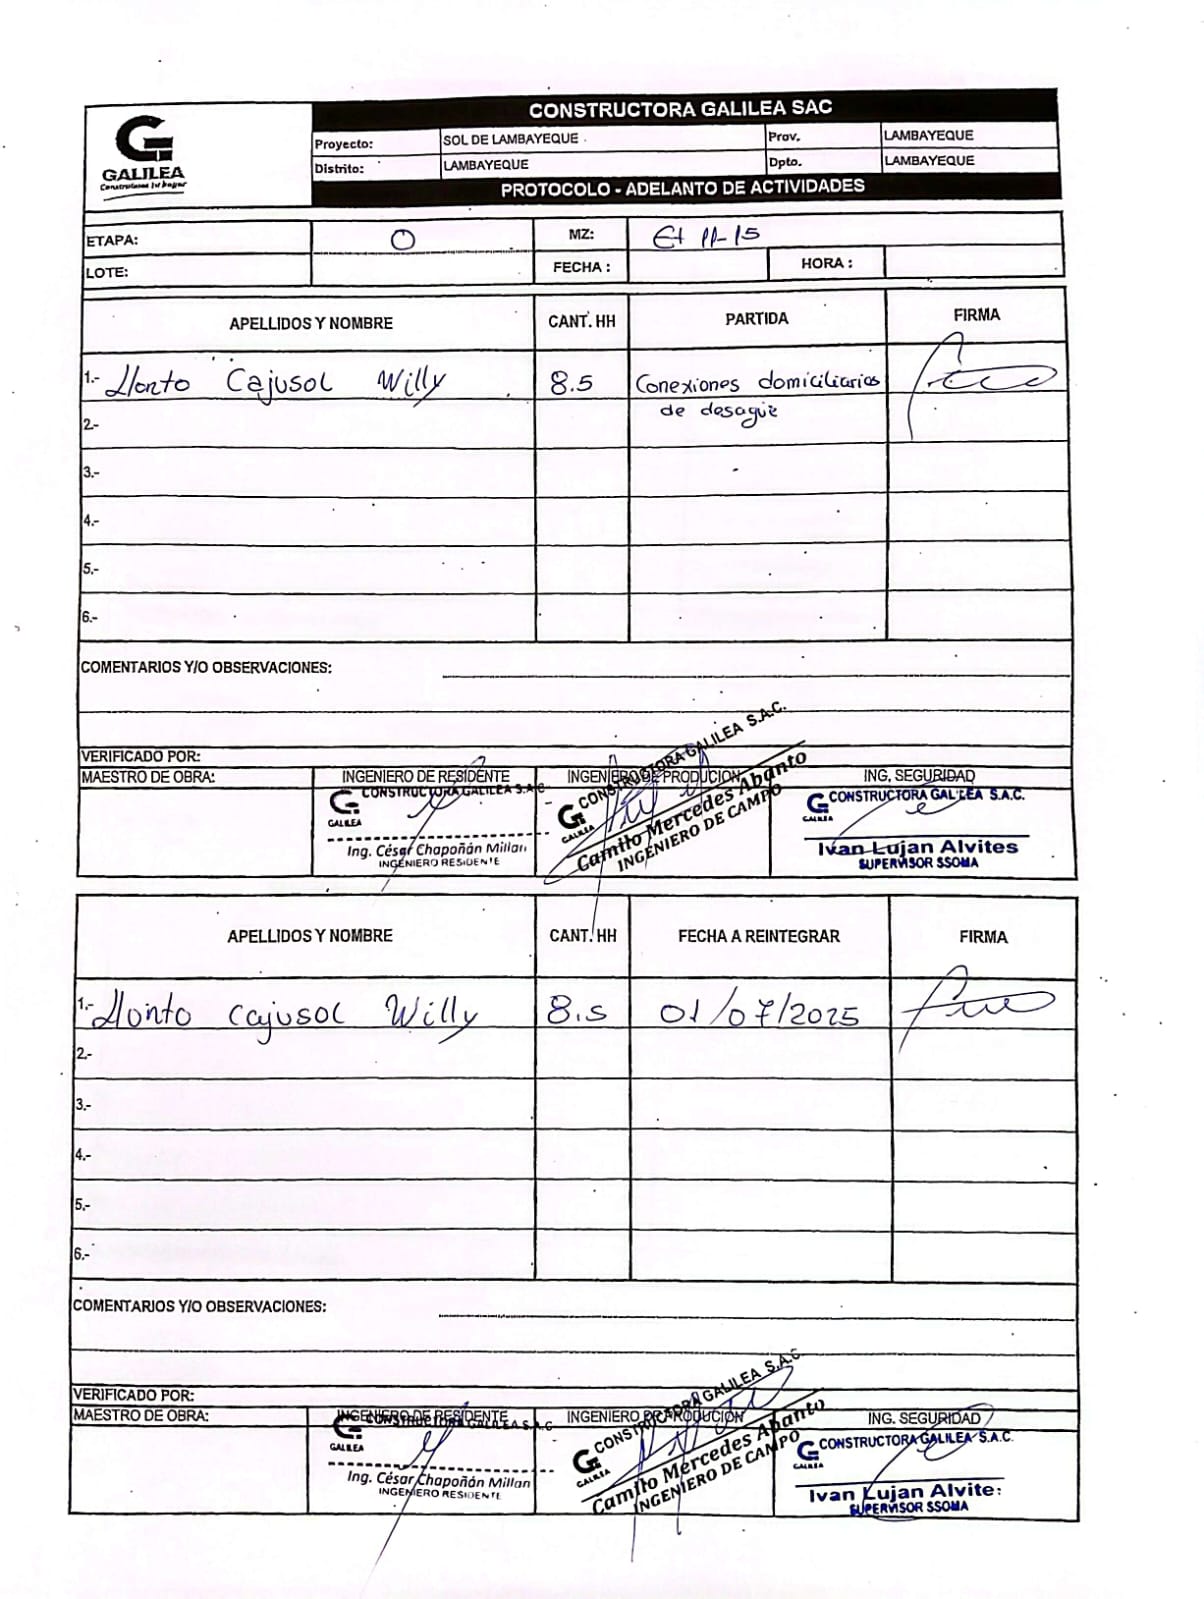 CONSTRUCTORA GALILEA SAC
GALILEA
Construimos tu hogar
Proyecto: SOL DE LAMBAYEQUE Prov. LAMBAYEQUE
Distrito: LAMBAYEQUE Dpto. LAMBAYEQUE
PROTOCOLO - ADELANTO DE ACTIVIDADES
ETAPA: 0 MZ: 11-15
LOTE: FECHA : HORA :
APELLIDOS Y NOMBRE CANT. HH PARTIDA FIRMA
1.- Llonto Cajusol Willy 8.5 Conexiones domiciliarias
de desagüe
2.-
3.-
4.-
5.-
6.-
COMENTARIOS Y/O OBSERVACIONES:
VERIFICADO POR:
MAESTRO DE OBRA: INGENIERO DE RESIDENTE INGENIERO DE PRODUCION ING. SEGURIDAD
CONSTRUCTORA GALILEA S.A.C
GALILEA
Ing. César Chapoñán Millan
INGENIERO RESIDENTE
CONSTRUCTORA GALILEA S.A.C.
GALILEA
Camilo Mercedes Abanto
INGENIERO DE CAMPO
CONSTRUCTORA GALILEA S.A.C.
GALILEA
Ivan Lujan Alvites
SUPERVISOR SSOMA
APELLIDOS Y NOMBRE CANT. HH FECHA A REINTEGRAR FIRMA
1.- Llonto Cajusol Willy 8.5 01/07/2025
2.-
3.-
4.-
5.-
6.-
COMENTARIOS Y/O OBSERVACIONES:
VERIFICADO POR:
MAESTRO DE OBRA: INGENIERO DE RESIDENTE INGENIERO PRODUCIÓN ING. SEGURIDAD
CONSTRUCTORA GALILEA S.A.C
GALILEA
Ing. César Chapoñán Millan
INGENIERO RESIDENTE
CONSTRUCTORA GALILEA S.A.C
GALILEA
Camilo Mercedes Abanto
INGENIERO DE CAMPO
CONSTRUCTORA GALILEA S.A.C.
GALILEA
Ivan Lujan Alvites
SUPERVISOR SSOMA